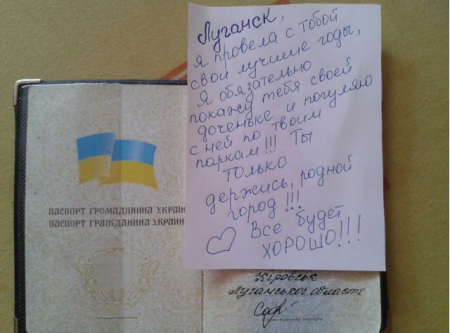 Луганск,
я провела с тобой
свои лучшие годы,
Я обязательно
покажу тебя своей
доченьке и погуляю
с ней по твоим
паркам!!! Ты
только
держись, родной
город !!!
Все будет
ХОРОШО!!!
ПАСПОРТ ГРОМАДЯНИНА УКРАЇН
ПАСПОРТ ГРАЖДАНИНА УКРАИН
Кіровськ
Луганської області